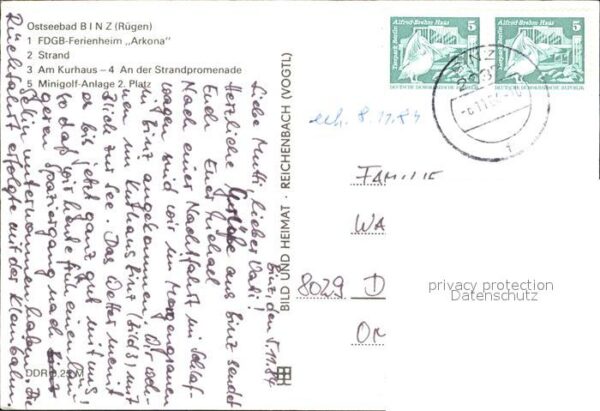 Ostseebad BINZ (Rügen)
1 FDGB-Ferienheim „Arkona"
2 Strand
3 Am Kurhaus – 4 An der Strandpromenade
5 Minigolf-Anlage 2. Platz
Binz, den 5.11.84
Liebe Mutti, lieber Vati!
Herzliche Grüße aus Binz sendet
Euch Euer Michael
Nach einer Nachtfahrt im Schlaf-
wagen sind wir im Morgengrauen
in Binz angekommen. Wir woh-
nen im Kurhaus Binz (Bild 3) mit
Blick zur See. Das Wetter meint
es bis jetzt ganz gut mit uns,
so daß wir heute früh einen län-
geren Spaziergang nach
Sellin unternommen haben. Die
Rückfahrt erfolgte mit der Kleinbahn.
DDR 0,25 M
BILD UND HEIMAT · REICHENBACH (VOGTL)
Alfred-Brehm Haus
5
Tierpark Berlin
DEUTSCHE DEMOKRATISCHE REPUBLIK
Alfred-Brehm Haus
5
Tierpark Berlin
DEUTSCHE DEMOKRATISCHE REPUBLIK
BINZ
1
8.11.84
FAMILIE
WA
8029 D
privacy protection
Datenschutz